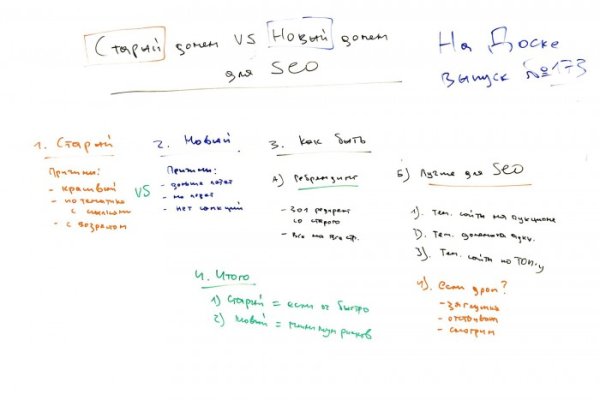 Старый домен VS Новый домен
для SEO
На Доске
выпуск №173
1. Старый
Причины:
- красивый
- по тематике
с ссылками
- с возрастом
VS
2. Новый
Причины:
- дольше
- не
- нет санкций
3. Как быть
А) Ребрендинг
- 301 редирект
со старого
- Все на все стр.
Б) Лучше для SEO
1). Тем. сайты на аукционе
2). Тем. домена аукц.
3). Тем. сайты по ТОП-у
4). Если дроп?
- заглушка
- отстоявать
- смотрим
4. Итого
1) Старый = если оч быстро
2) Новый = минимум рисков